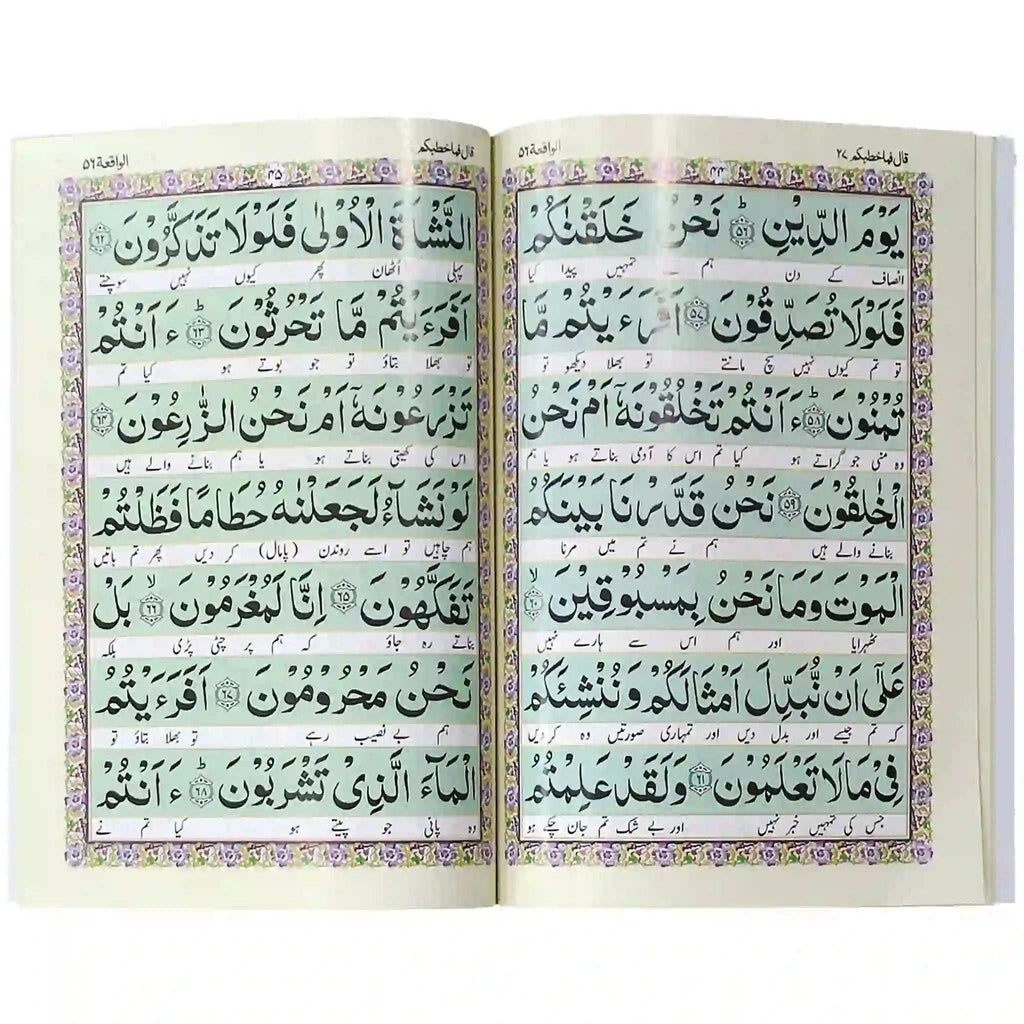 قال فما خطبكم ۲۷
الواقعة ۵۶
۴۴
يَوْمَ الدِّيْنِ ؕ ۵۶ نَحْنُ خَلَقْنٰكُمْ
انصاف کے دن ہم نے تمہیں پیدا کیا
فَلَوْلَا تُصَدِّقُوْنَ ۵۷ اَفَرَءَيْتُمْ مَّا
تو تم کیوں نہیں سچ مانتے تو بھلا دیکھو تو
تُمْنُوْنَ ؕ ۵۸ ءَ اَنْتُمْ تَخْلُقُوْنَهٗۤ اَمْ نَحْنُ
وہ منی جو گراتے ہو کیا تم اس کا آدمی بناتے ہو یا ہم
الْخٰلِقُوْنَ ۵۹ نَحْنُ قَدَّرْنَا بَيْنَكُمُ
بنانے والے ہیں ہم نے تم میں مرنا
الْمَوْتَ وَمَا نَحْنُ بِمَسْبُوْقِيْنَ ۙ ۶۰
ٹھہرایا اور ہم اس سے ہارے نہیں
عَلٰۤى اَنْ نُّبَدِّلَ اَمْثَالَكُمْ وَنُنْشِئَكُمْ
کہ تم جیسے اور بدل دیں اور تمہاری صورتیں وہ کر دیں
فِيْ مَا لَا تَعْلَمُوْنَ ۶۱ وَلَقَدْ عَلِمْتُمُ
جس کی تمہیں خبر نہیں اور بے شک تم جان چکے ہو
قال فما خطبكم
الواقعة ۵۶
۴۵
النَّشْاَةَ الْاُوْلٰى فَلَوْلَا تَذَكَّرُوْنَ ۶۲
پہلی اٹھان پھر کیوں نہیں سوچتے
اَفَرَءَيْتُمْ مَّا تَحْرُثُوْنَ ؕ ۶۳ ءَ اَنْتُمْ
تو بھلا بتاؤ تو جو بوتے ہو کیا تم
تَزْرَعُوْنَهٗۤ اَمْ نَحْنُ الزّٰرِعُوْنَ ۶۴
اس کی کھیتی بناتے ہو یا ہم بنانے والے ہیں
لَوْ نَشَآءُ لَجَعَلْنٰهُ حُطَامًا فَظَلْتُمْ
ہم چاہیں تو اسے روندن (پامال) کر دیں پھر تم باتیں
تَفَكَّهُوْنَ ۶۵ اِنَّا لَمُغْرَمُوْنَ ۙ ۶۶ بَلْ
بناتے رہ جاؤ کہ ہم پر چٹی پڑی بلکہ
نَحْنُ مَحْرُوْمُوْنَ ۶۷ اَفَرَءَيْتُمُ
ہم بے نصیب رہے تو بھلا بتاؤ تو
الْمَآءَ الَّذِيْ تَشْرَبُوْنَ ؕ ۶۸ ءَ اَنْتُمْ
وہ پانی جو پیتے ہو کیا تم نے